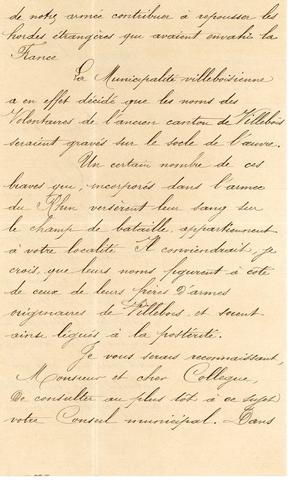 de notre armée contribuer à repousser les
hordes étrangères qui avaient envahi la
France
La Municipalité villeboisienne
a en effet décidé que les noms des
Volontaires de l'ancien canton de Villebois
seraient gravés sur le socle de l'œuvre.
Un certain nombre de ces
braves qui, incorporés dans l'armée
du Rhin versèrent leur sang sur
le champ de bataille, appartiennent
à votre localité Il conviendrait, je
crois, que leurs noms figurent à côté
de ceux de leurs frères d'armes
originaires de Villebois et soient
ainsi légués à la postérité.
Je vous serais reconnaissant,
Monsieur et cher Collègue,
de consulter au plus tôt à ce sujet
votre Conseil municipal. Dans